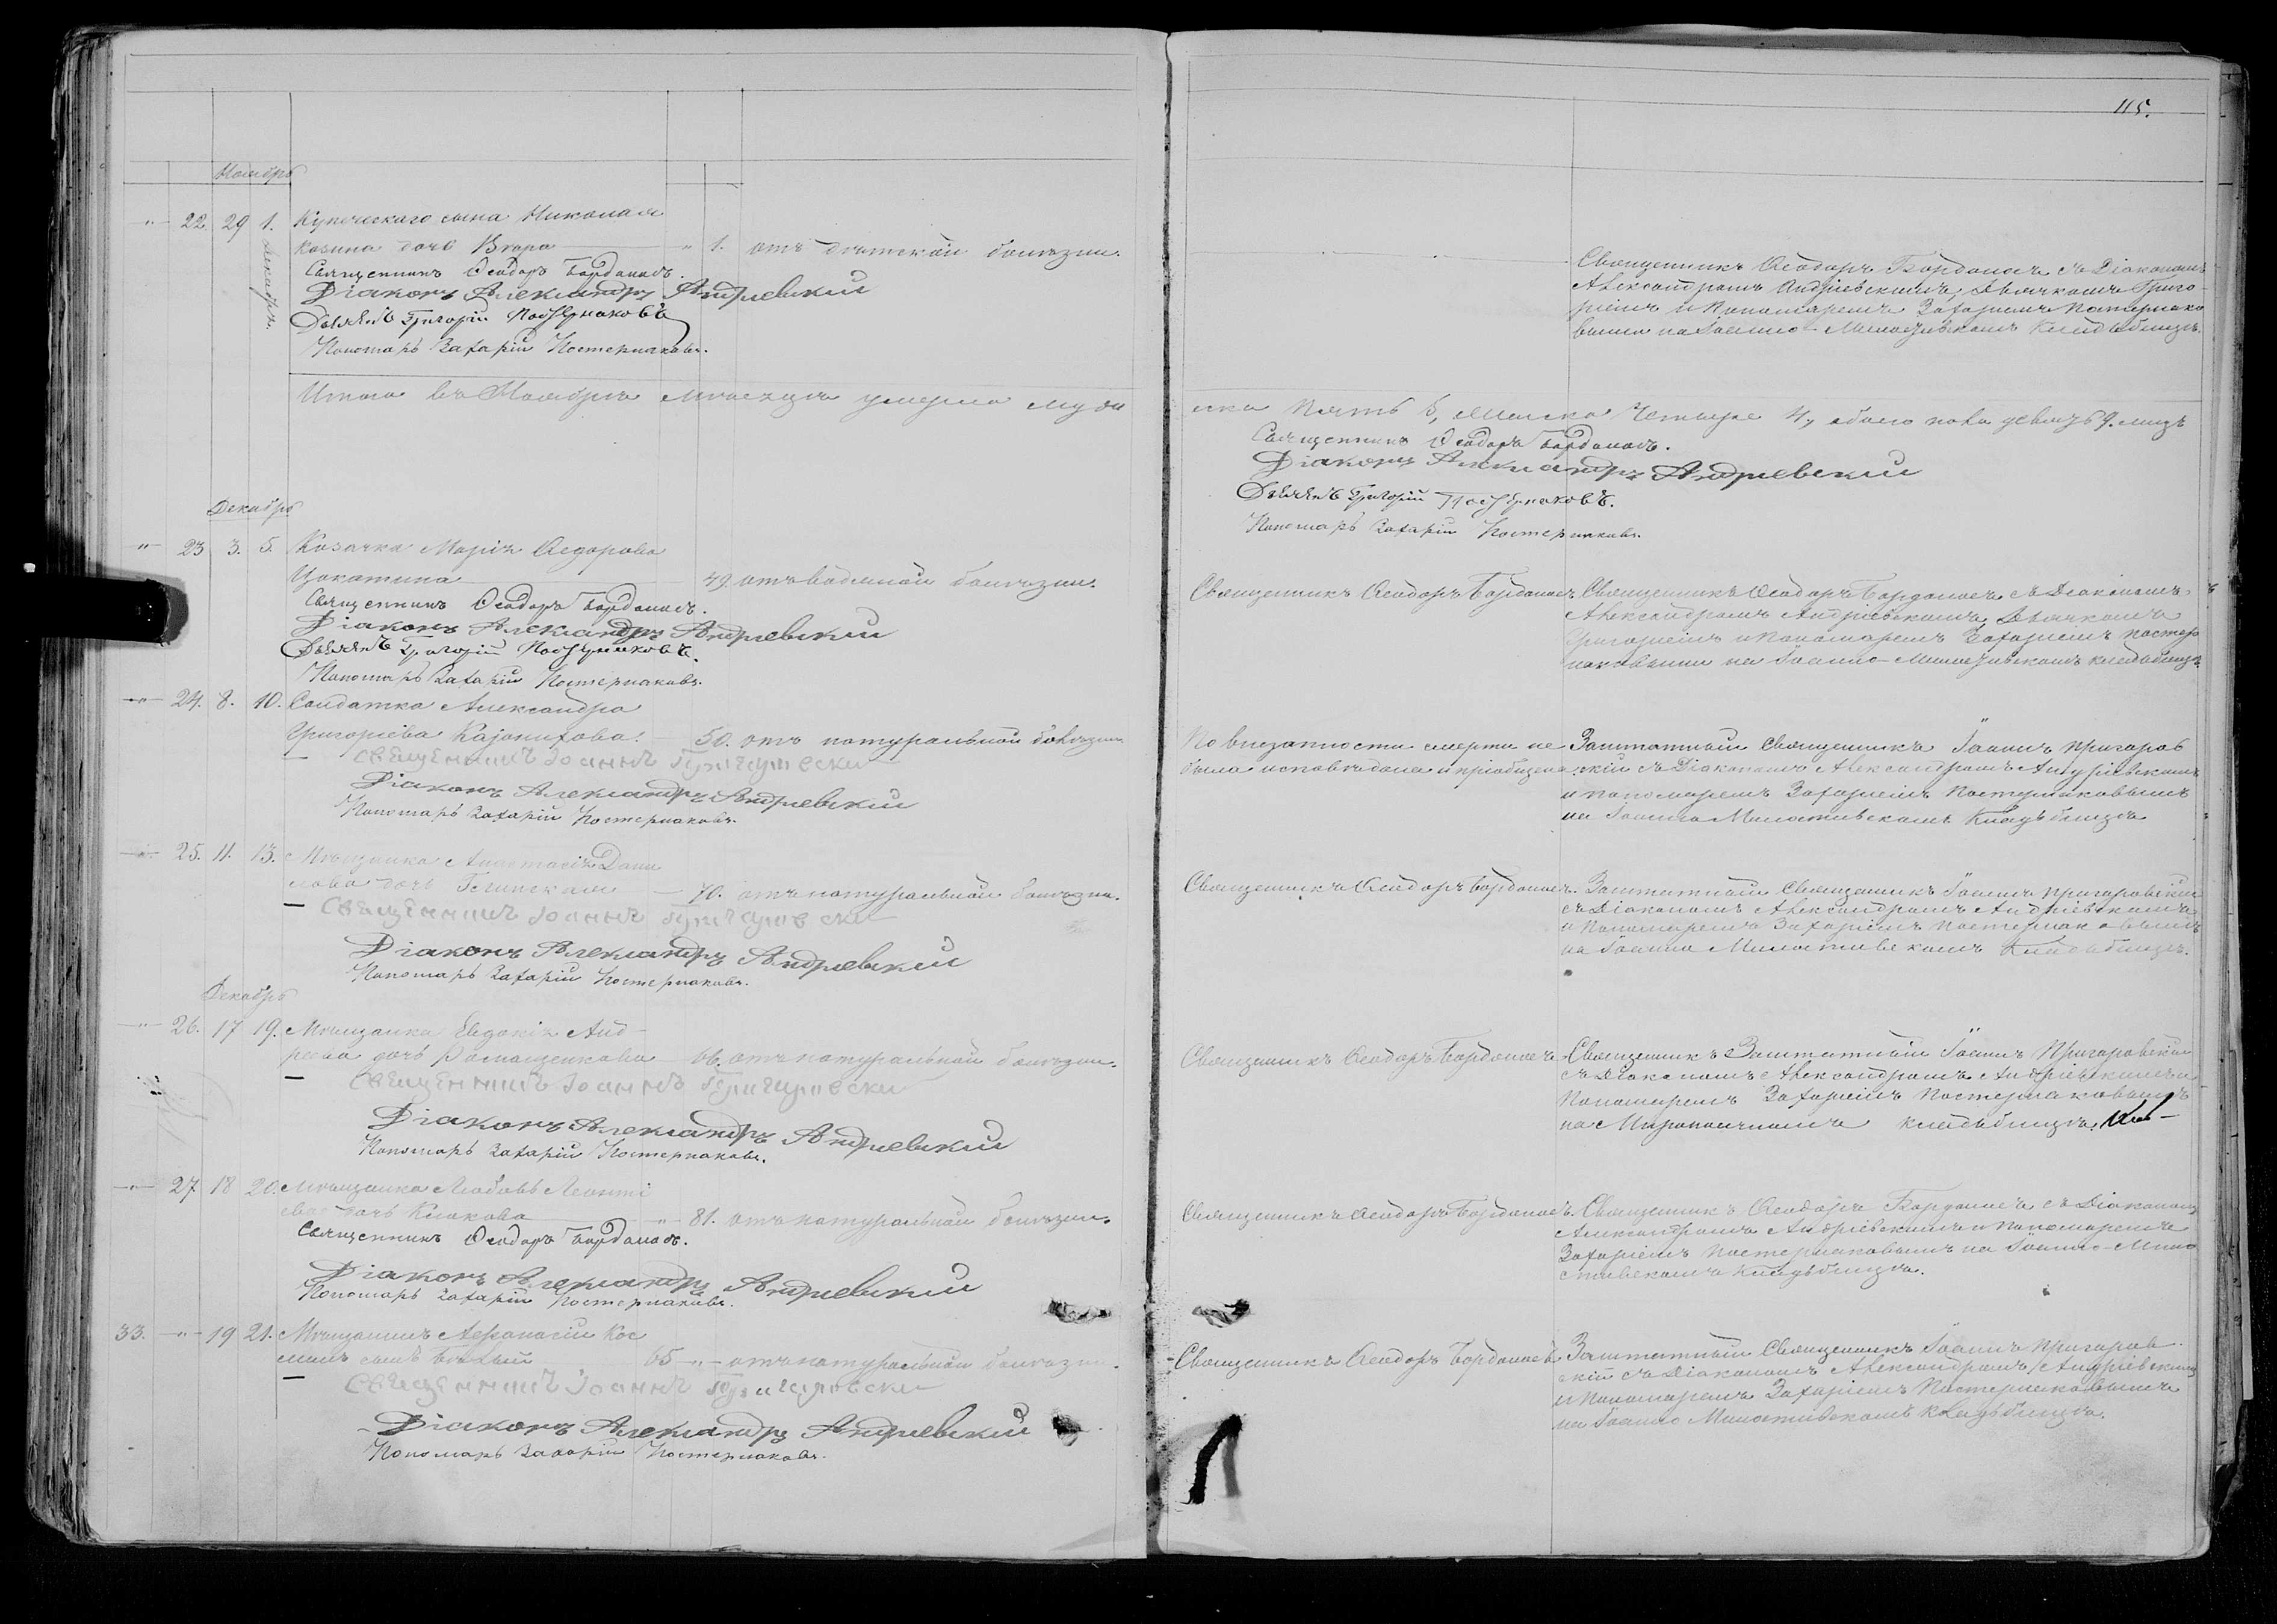 115.
Ноябрь
" 22. 29 1. Купеческаго сына Николая
Козина дочь Вѣра " 1. отъ дѣтской болѣзни.
Декабрь.
Священникъ Ѳеодоръ Бордоносъ.
Діаконъ Александръ Андріевскій
Дьячекъ Григорій Постернаковъ
Пономарь Захарій Постернаковъ.
Священникъ Ѳеодоръ Бордоносъ съ Діакономъ
Александромъ Андріевскимъ, Дьячкомъ Григо-
ріемъ и Пономаремъ Захаріемъ Постернако
выми на Іоанно-Милостивскомъ Кладьбищѣ.
Итого въ Ноябрѣ мѣсяцѣ умерло муже
ска Пять 5, Женска Четыре 4, обоего пола девять 9. лицъ
Священникъ Ѳеодоръ Бордоносъ.
Діаконъ Александръ Андріевскій
Дьячекъ Григорій Постернаковъ.
Пономарь Захарій Постернаковъ.
Декабрь
" 23 3. 5. Козачка Марія Ѳедорова
49. отъ водяной болѣзни.
Священникъ Ѳеодоръ Бордоносъ.
Діаконъ Александръ Андріевскій
Дьячекъ Григорій Постернаковъ.
Пономарь Захарій Постернаковъ.
Священникъ Ѳеодоръ Бордоносъ
Священникъ Ѳеодоръ Бордоносъ съ Діакономъ
Александромъ Андріевскимъ, Дьячкомъ
Григоріемъ и Пономаремъ Захаріемъ Постер
наковыми на Іоанно-Милостивскомъ кладьбищѣ.
" 24. 8. 10. Солдатка Александра
Григоріева 50. отъ натуральной болѣзни
Священникъ Іоаннъ Пригаровски
Діаконъ Александръ Андріевскій
Пономарь Захарій Постернаковъ.
По внезапности смерти не
была исповѣдана и пріобщена.
Заштатный Священникъ Іоаннъ Пригаров
скій съ Діакономъ Александромъ Андріевскимъ
и пономаремъ Захаріемъ Постернаковымъ
на Іоанно Милостивскомъ Кладьбищѣ
" 25. 11. 13. Мѣщанка Анастасія Дани
лова дочь 70. отъ натуральной болѣзни.
Священникъ Іоаннъ Пригаровски
Діаконъ Александръ Андріевскій
Пономарь Захарій Постернаковъ.
Священникъ Ѳеодоръ Бордоносъ.
Заштатный Священникъ Іоаннъ Пригаровскій
съ Діакономъ Александромъ Андріевскимъ
и Пономаремъ Захаріемъ Постернаковымъ
на Іоанно Милостивскомъ Кладьбищѣ.
Декабрь
" 26. 17 19. Мѣщанка Евдокія Анд-
реева дочь Ромащенкова 66. отъ натуральной болѣзни.
Священникъ Іоаннъ Пригаровски
Діаконъ Александръ Андріевскій
Пономарь Захарій Постернаковъ.
Священникъ Ѳеодоръ Бордоносъ
Священникъ Заштатный Іоаннъ Пригаровскій
съ Діакономъ Александромъ Андріевскимъ и
Пономаремъ Захаріемъ Постернаковымъ
на кладьбищѣ.
" 27 18 20. Мѣщанка Любовь Леонті
ева дочь Клокова " 81. отъ натуральной болѣзни.
Священникъ Ѳеодоръ Бордоносъ.
Діаконъ Александръ Андріевскій
Пономарь Захарій Постернаковъ.
Священникъ Ѳеодоръ Бордоносъ.
Священникъ Ѳеодоръ Бордоносъ съ Діакономъ
Александромъ Андріевскимъ и пономаремъ
Захаріемъ Постернаковымъ на Іоанно-Мило
стивскомъ Кладьбищѣ.
33. " 19 21. Мѣщанинъ Аѳанасій Кос
минъ сынъ 65 " отъ натуральной болѣзни.
Священникъ Іоаннъ Пригаровски
Діаконъ Александръ Андріевскій
Пономарь Захарій Постернаковъ.
Священникъ Ѳеодоръ Бордоносъ
Заштатный Священникъ Іоаннъ Пригаров-
скій съ Діакономъ Александромъ Андріевскимъ
и Пономаремъ Захаріемъ Постернаковымъ
на Іоанно Милостивскомъ кладьбищѣ.